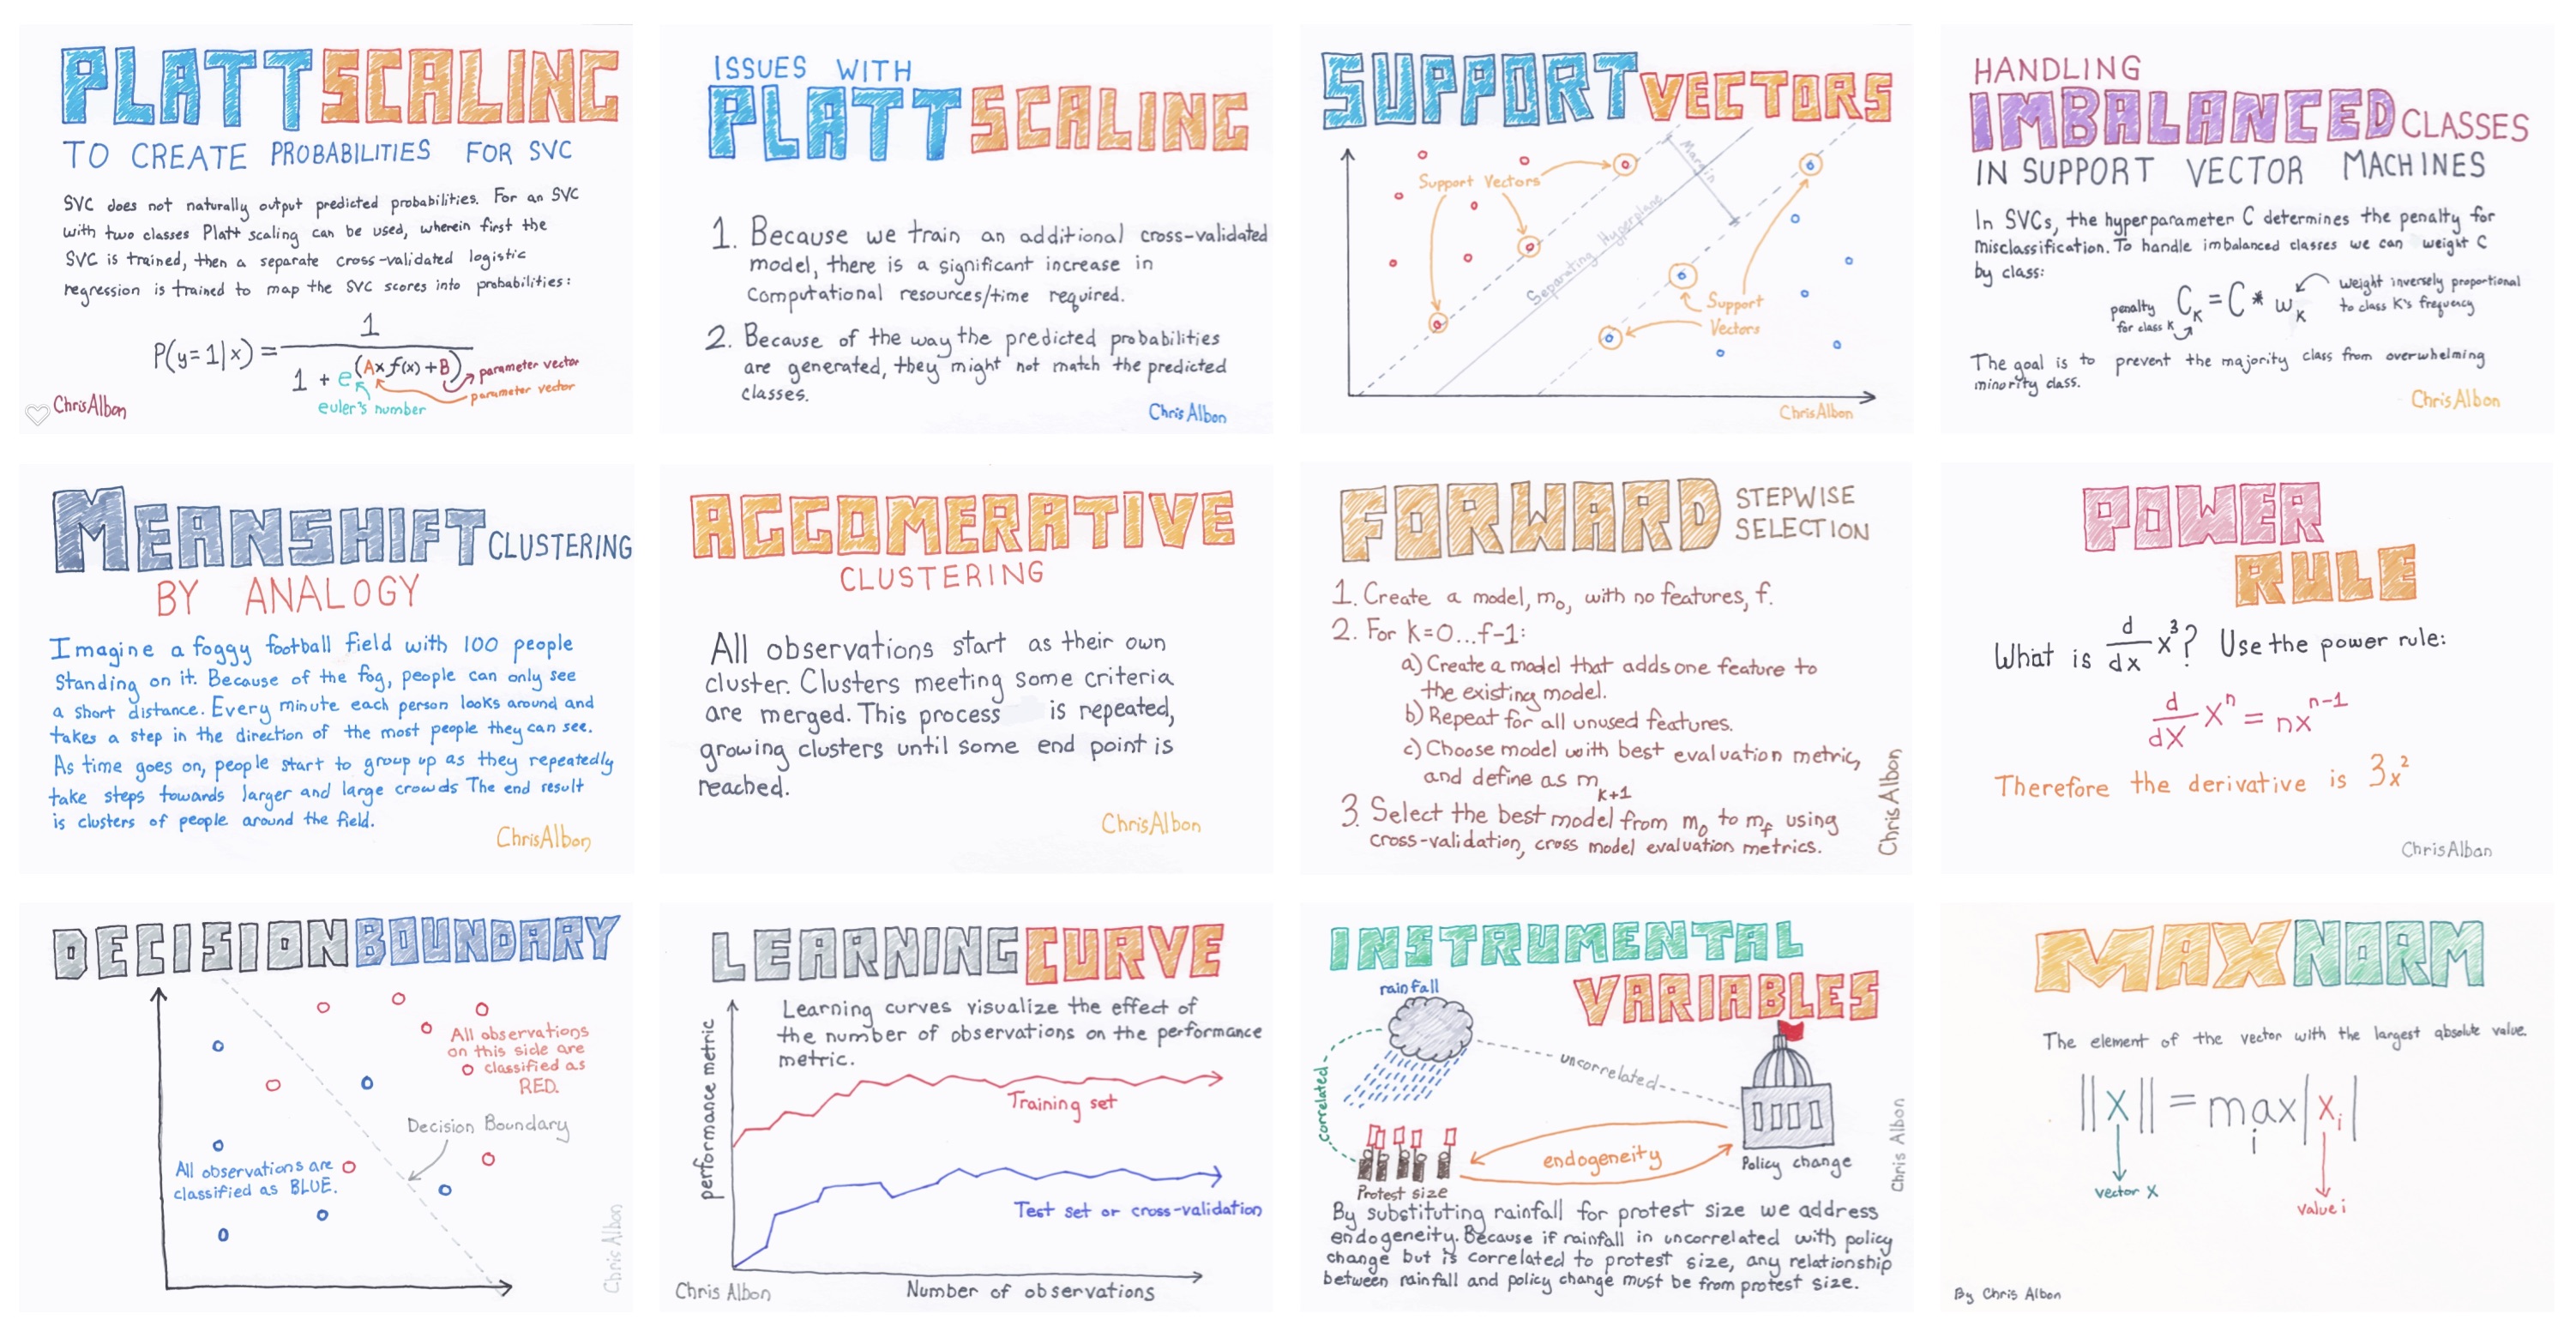 PLATT SCALING
TO CREATE PROBABILITIES FOR SVC
SVC does not naturally output predicted probabilities. For an SVC
with two classes Platt scaling can be used, wherein first the
SVC is trained, then a separate cross-validated logistic
regression is trained to map the SVC scores into probabilities:
P(y=1|x) = 1 / (1 + e^(A x f(x) + B))
parameter vector
parameter vector
euler's number
ChrisAlbon
ISSUES WITH
PLATT SCALING
1. Because we train an additional cross-validated
model, there is a significant increase in
computational resources/time required.
2. Because of the way the predicted probabilities
are generated, they might not match the predicted
classes.
Chris Albon
SUPPORT VECTORS
Margin
Support Vectors
Separating Hyperplane
Support
Vectors
ChrisAlbon
HANDLING
IMBALANCED CLASSES
IN SUPPORT VECTOR MACHINES
In SVCs, the hyperparameter C determines the penalty for
misclassification. To handle imbalanced classes we can weight C
by class:
penalty
for class K
C_K = C * w_K
weight inversely proportional
to class K's frequency
The goal is to prevent the majority class from overwhelming
minority class.
ChrisAlbon
MEANSHIFT CLUSTERING
BY ANALOGY
Imagine a foggy football field with 100 people
standing on it. Because of the fog, people can only see
a short distance. Every minute each person looks around and
takes a step in the direction of the most people they can see.
As time goes on, people start to group up as they repeatedly
take steps towards larger and large crowds The end result
is clusters of people around the field.
ChrisAlbon
AGGOMERATIVE
CLUSTERING
All observations start as their own
cluster. Clusters meeting some criteria
are merged. This process is repeated,
growing clusters until some end point is
reached.
ChrisAlbon
FORWARD STEPWISE
SELECTION
1. Create a model, m_0, with no features, f.
2. For K=0...f-1:
a) Create a model that adds one feature to
the existing model.
b) Repeat for all unused features.
c) Choose model with best evaluation metric,
and define as m_K+1
3. Select the best model from m_0 to m_f using
cross-validation, cross model evaluation metrics.
Chris Albon
POWER
RULE
What is d/dx x^3? Use the power rule:
d/dx x^n = nx^n-1
Therefore the derivative is 3x^2
ChrisAlbon
DECISION BOUNDARY
All observations
on this side are
classified as
RED.
Decision Boundary
All observations are
classified as BLUE.
Chris Albon
LEARNING CURVE
Learning curves visualize the effect of
the number of observations on the performance
metric.
performance metric
Training set
Test set or cross-validation
Chris Albon
Number of observations
INSTRUMENTAL
VARIABLES
rainfall
uncorrelated
correlated
endogeneity
Policy change
Protest size
By substituting rainfall for protest size we address
endogeneity. Because if rainfall in uncorrelated with policy
change but is correlated to protest size, any relationship
between rainfall and policy change must be from protest size.
Chris Albon
MAX NORM
The element of the vector with the largest absolute value.
||X|| = max_i |x_i|
vector X
value i
By Chris Albon